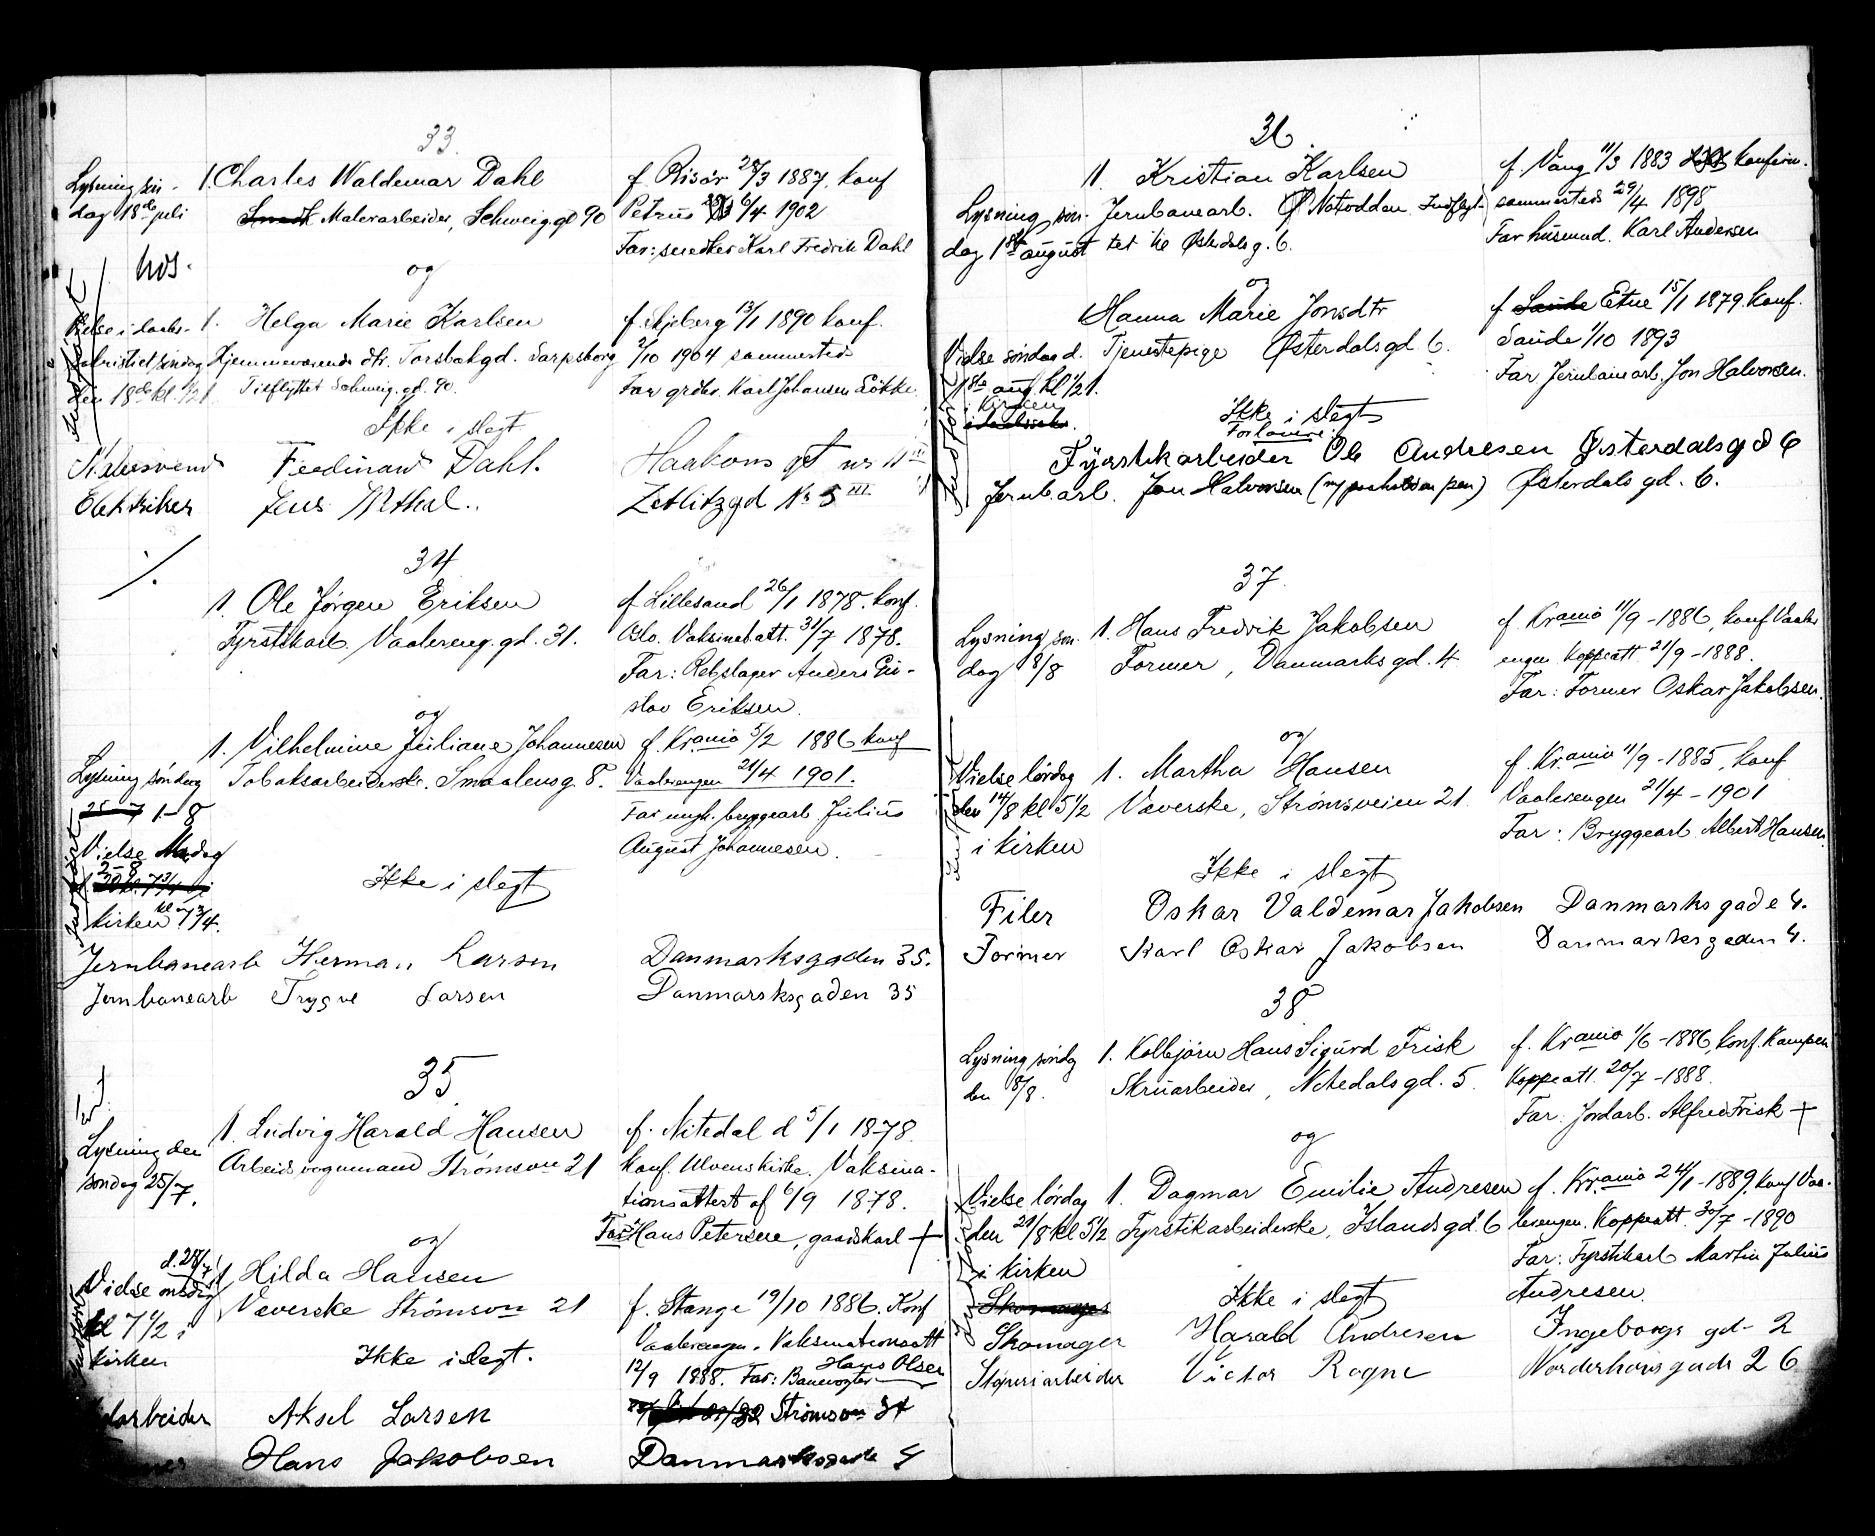 33.
Lysning søn-
dag 18de juli
1. Charles Waldemar Dahl
Malerarbeider, Schweig.gd 90
f. Risør 28/3 1887. konf
Petrus 6/4 1902
Far: snedker Karl Fredrik Dahl
og
1. Helga Marie Karlsen
Hjemmeværende dtr. Torsbækgd. Sarpsborg
Tilflyttet Schweig.gd. 90.
f. Skjeberg 13/1 1890 konf.
2/10 1904 sammesteds
Far grdbr. Karl Johansen Løkke
Ikke i slegt
Malersvend Ferdinand Dahl. Haakons gt nr 11 III
Elektriker Jens Zetlitzgd Nr 5 III
34
1. Ole Jørgen Eriksen
Fyrstikarb. Vaalereng.gd. 31.
f. Lillesand 26/1 1878. konf.
Oslo. Vaksinatatt. 31/7 1878.
Far: Rebslager Anders Gu-
stav Eriksen.
og
1. Vilhelmine Juliane Johannesen
Tobaksarbeiderske. Smaalensg 8.
f. Kr.ania 5/2 1886 konf
Vaalerengen 21/4 1901.
Far ungk. bryggearb Julius
August Johannesen.
Lysning søndag
25-7 1-8
Vielse
2-8
kirken kl 7 3/4.
Ikke i slegt
Jernbanearb Herman Larsen Danmarksgaden 35.
Jernbanearb Trygve Larsen Danmarksgaden 35
35.
Lysning den
søndag 25/7.
1. Ludvig Harald Hansen
Arbeidsvognmand Strømsvn 21
f. Nitedal d 5/1 1878
konf. Ulvens kirke. Vaksina-
tionsattest af 6/9 1878.
Far Hans Petersen, gaardskarl +
og
d. 28/7
Vielse onsdag
kl 7 1/2 i
kirken
1. Hilda Hansen
Væverske Strømsvn 21
Ikke i slegt.
f. Stange 19/10 1886. Konf
Vaalerengen. Vaksinationsatt
12/9 1888. Far: Banevogter Hans Olsen
Aksel Larsen Strømsvn
Hans Jakobsen Danmarksgade 4
36.
Lysning søn-
dag 1ste august
1. Kristian Karlsen
Jernbanearb. Notodden Indflyt-
tet til Østerdalsg. 6.
f. Vang 11/3 1883 konfirm.
sammesteds 29/4 1898
Far husmd. Karl Andersen
og
Hanna Marie Jonsdtr
Tjenestepige Østerdalsgd 6.
f. Saude Etne 15/1 1879. konf.
Saude 1/10 1893
Far Jernbanearb. Jon Halvorsen.
Vielse søndag d.
1ste aug. kl 1/2 1.
i kirken
Ikke i slegt
Forlovere:
Fyrstikarbeider Ole Andresen Østerdalsgd 6
Jernb.arb. Jon Halvorsen (m/ paaholden pen) Østerdalsgd. 6.
37.
Lysning søn-
dag 8/8
1. Hans Fredrik Jakobsen
Former, Danmarksgd. 4
f. Kr.ania 11/9 - 1886, konf Vaaler
engen Koppeatt. 21/9 - 1888.
Far: Former Oskar Jakobsen.
og
Vielse lørdag
den 14/8 kl 5 1/2
i kirken
1. Martha Hansen
Væverske, Strømsveien 21
f. Kr.ania 11/9 - 1885, konf
Vaalerengen 21/4 - 1901
Far: Bryggearb. Albert Hansen.
Ikke i slegt
Filer Oskar Valdemar Jakobsen Danmarksgade 4.
Former Karl Oskar Jakobsen Danmarksgaden 4.
38
Lysning søndg
den 8/8.
1. Kolbjørn Hans Sigurd Frisk
Skruarbeider, Nitedalsgd. 5.
f. Kr.ania 1/6 - 1886, konf. Kampen
Koppeatt. 20/7 - 1888.
Far: Jordarb. Alfred Frisk +
og
Vielse lørdag
den 21/8 kl 5 1/2
i kirken
1. Dagmar Emilie Andresen
Fyrstikarbeiderske, Islandsgd 6
f. Kr.ania 24/1 - 1889, konf Vaa-
lerengen. Koppeatt. 30/7 - 1890
Far: Fyrstikarb Martin Julius
Andresen.
Ikke i slegt
Skomager
Skomager Harald Andresen Ingeborgs gd- 2
Støperiarbeider Victor Rogne Norderhovsgade 26